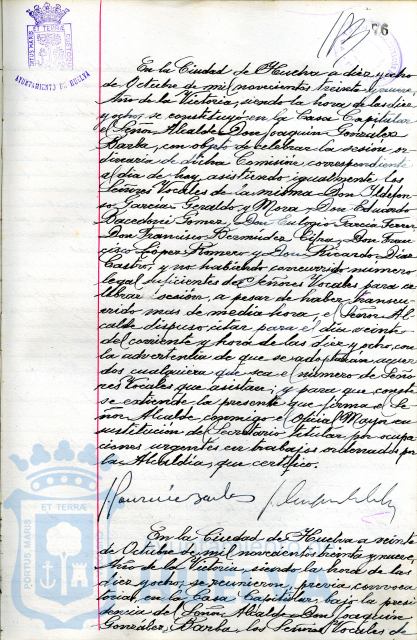 76
AYUNTAMIENTO DE HUELVA
En la Ciudad de Huelva a diez y ocho
de Octubre de mil novecientos treinta y nueve,
Año de la Victoria, siendo la hora de las diez
y ocho, se constituyó en la Casa Capitular
el Señor Alcalde Don Joaquin Gonzalez
Barba, con objeto de celebrar la sesión or-
dinaria de dicha Comisión, correspondiente
al dia de hoy, asistiendo igualmente los
Señores Vocales de la misma Don Ildefon-
so García Geraldo y Mora, Don Eduardo
Gomez, Don Eulogio García
Don Francisco Bermúdez Cifra, Don Fran-
cisco López Romero y Don Ricardo Diaz
Castro, y no habiendo concurrido número
legal suficientes de Señores Vocales para ce-
lebrar sesión, a pesar de haber transcu-
rrido mas de media hora, el Señor Al-
calde dispuso citar para el dia veinte
del corriente y hora de las diez y ocho, con
la advertencia de que se adoptarán acuer-
dos cualquiera que sea el número de Seño-
res Vocales que asistan; y para que conste
se extiende la presente que firma el Se-
ñor Alcalde conmigo el Oficial Mayor en
sustitución del Secretario titular por ocupa-
ciones urgentes en trabajos ordenados por
la Alcaldia, que certifico.
ET TERRÆ
PORTUS MARIS
CUSTODIA
En la Ciudad de Huelva a veinte
de Octubre de mil novecientos treinta y nueve,
Año de la Victoria, siendo la hora de las
diez y ocho, se reunieron, previa convoca-
toria, en la Casa Capitular, bajo la presi-
dencia del Señor Alcalde Don Joaquin
Gonzalez Barba, los Señores Vocales